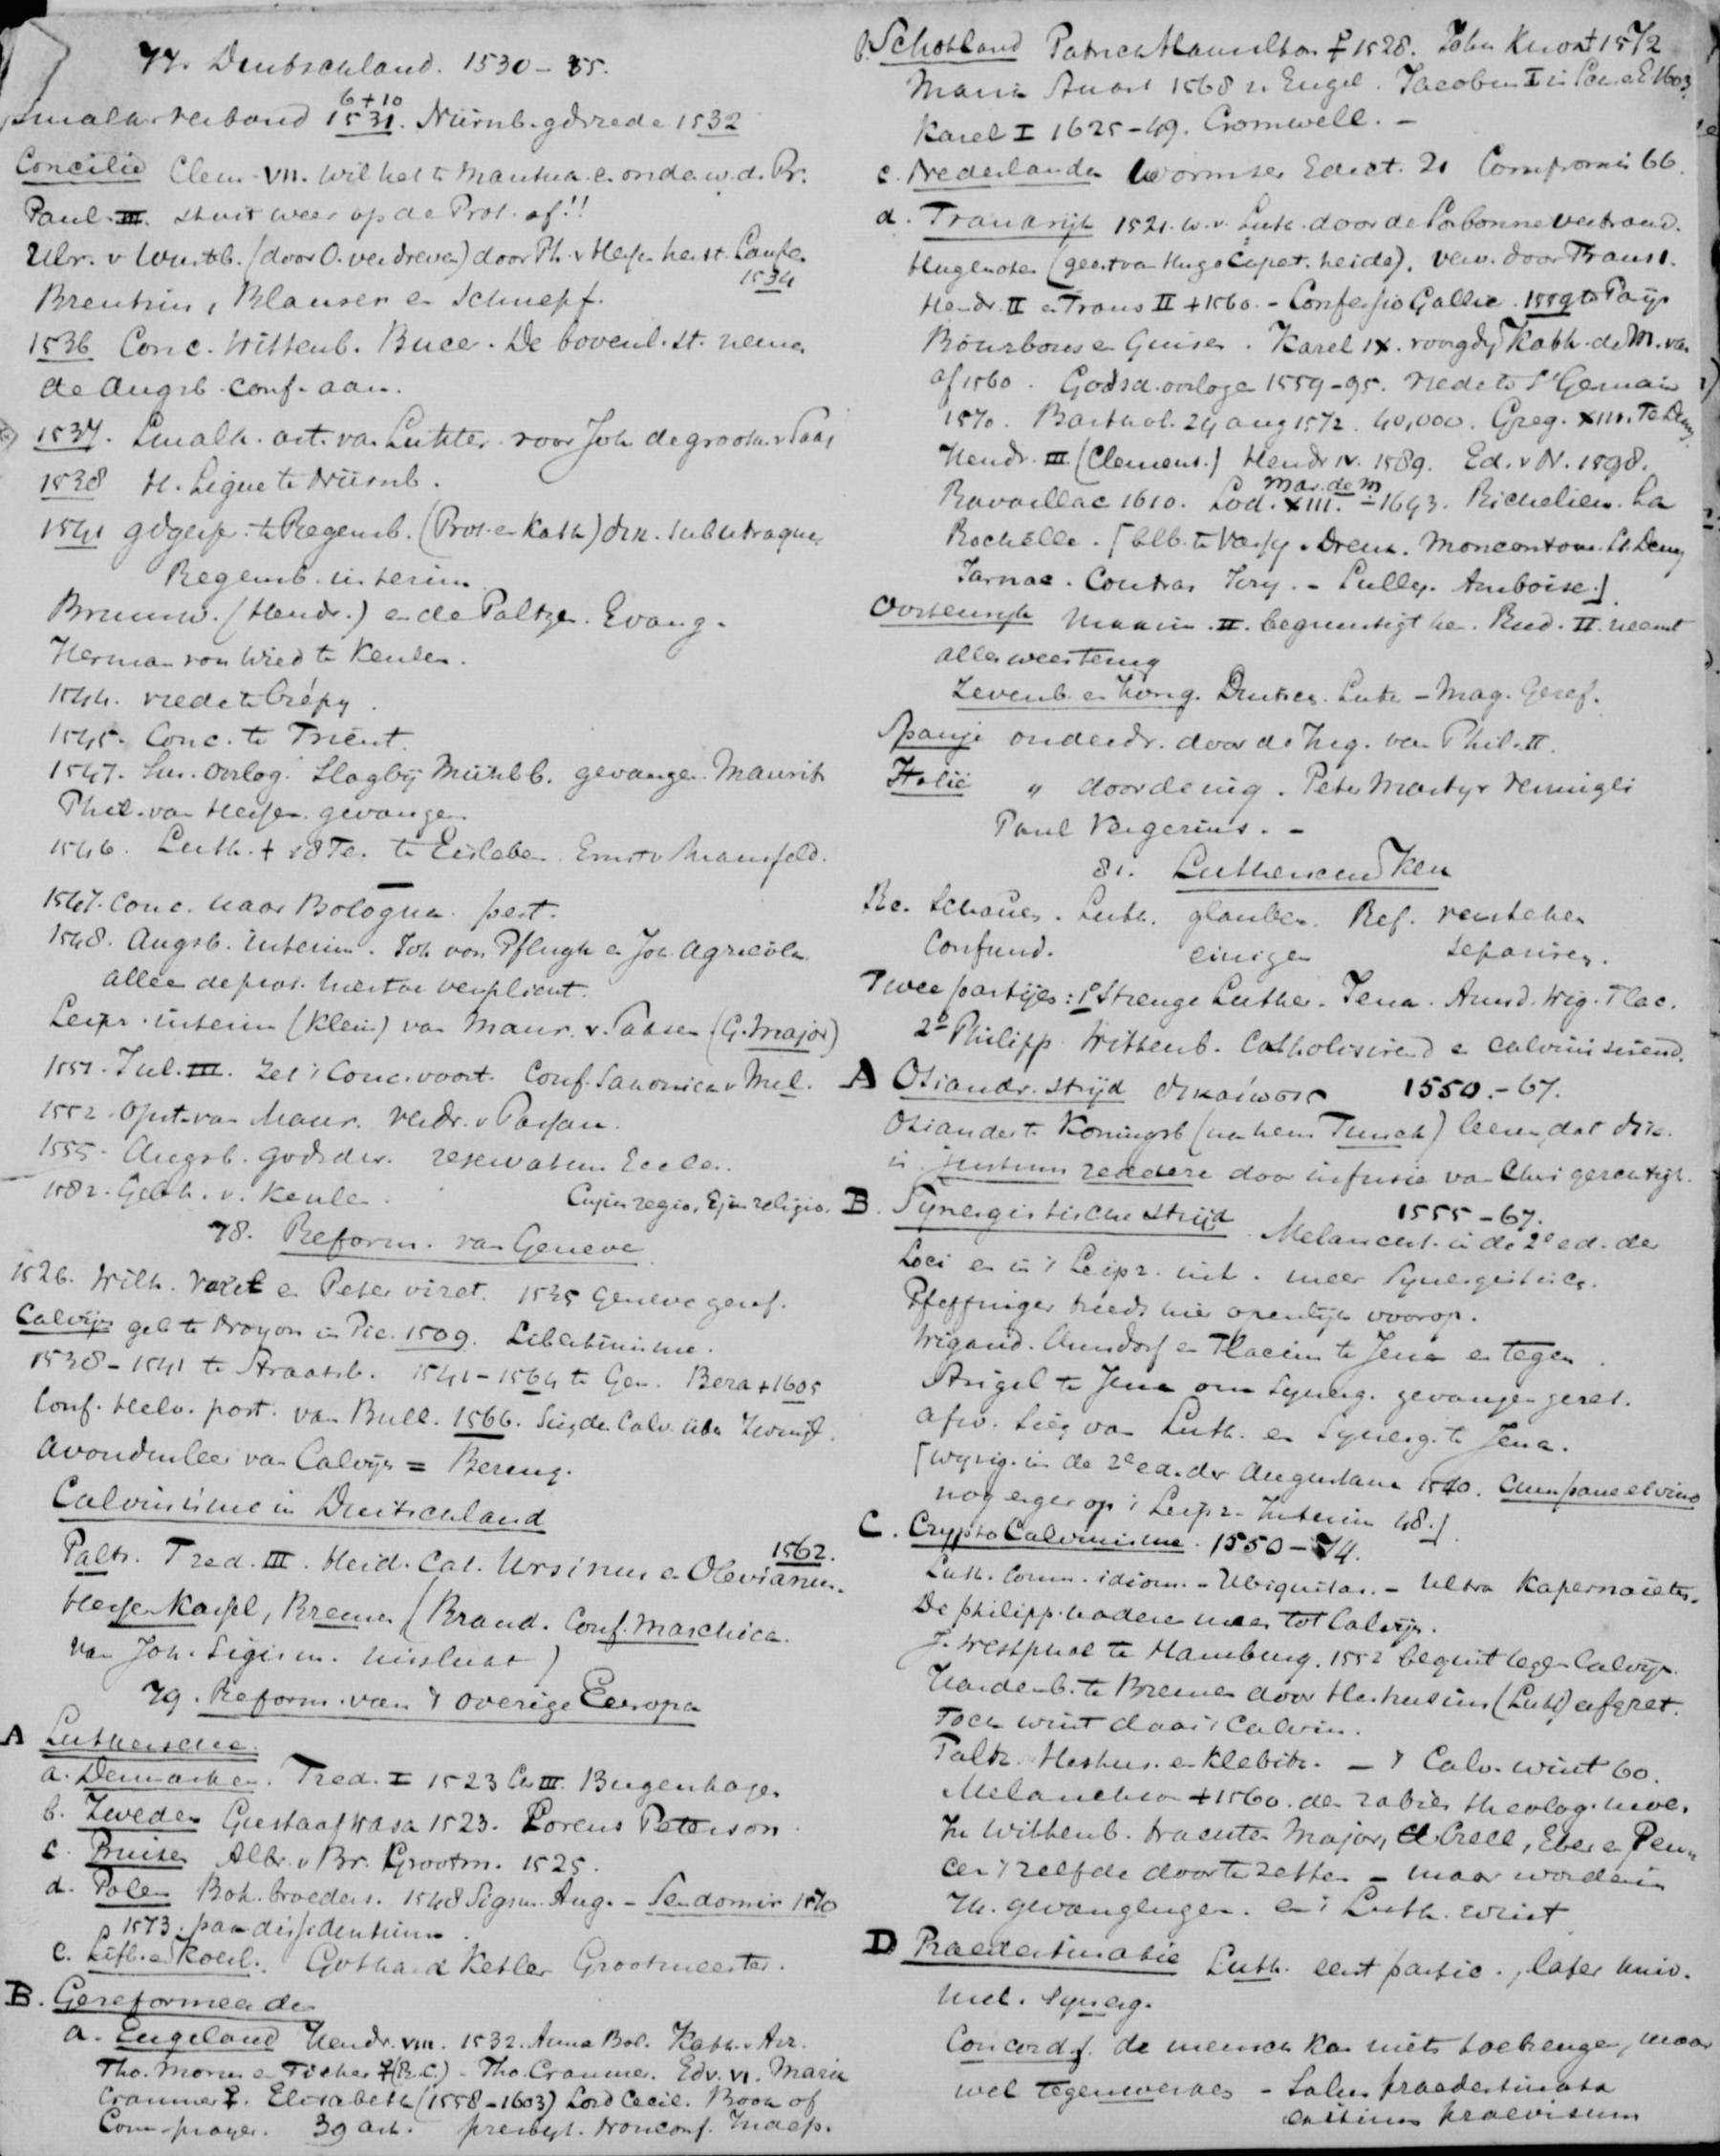 77. Deutschland. 1530-55.
6+10
smalk. verbond 1531. Nürnb. gdvrede 1532
Concilie Clem. VII. wil het te Mantua e. onderw. d. Pr.
Paul. III. stuit weer op de Prot. af!!
Ulr. v Wurtb. (door O. verdreven) door Ph. v Hessen herst. Laufen
1534
Brentius, Blaurer en Schnepf.
1536 Conc. Wittenb. Bucer. De bovenl. st. nemen
de Augsb. conf. aan.
1537. Smalk. art. van Luther voor Joh de grootm. v Saxs
1538 H. Ligue te Nürnb.
1541 gdgespr. te Regensb. (Prot. en Kath) ork. sub utraque
Regensb. interim
Brunsw. (Hendr.) en de Paltz. Evang.
Herman von Wied te Keulen.
1544. vrede te Crépy.
1545. Conc. te Trient.
1547. Sm. oorlog. Slag bij Mühlb. gevangen. Maurits
Phil. van Hessen gevangen
1546. Luth. + 18 Fe. te Eisleben. Ernst v Mansfeld.
1547. conc. naar Bologna. pest.
1548. Augsb. Interim. Joh von Pflugh en Joh. Agricola
alleen de prot. hiertoe verplicht.
Leipz. interim (klein) van Maur. v. Saksen (G. Major)
1551. Jul. III. zet 't Conc. voort. Conf. Saxonica v Mel.
1552. opst. van Maur. verdr. v Passau.
1555. Augsb. godsdvr. reservatum Eccles.
1582. Gebh. v. Keulen. Cujus regio, Ejus religio.
78. Reform. van Geneve
1526. Wilh. Varel en Peter viret. 1535 Geneve geref.
Calvijn geb te Noyon in Pic. 1509. Libertinisme.
1538-1541 te Straatsb. 1541-1564 te Gen. Beza +1605
Conf. Helv. post. van Bull. 1566. Sieg der Calv. über Zwingl.
Avondmleer van Calvijn = Bereng.
Calvinisme in Duitschland
Paltz. Fred. III. Heid. Cat. Ursinus en Olevianus. 1562.
Hessen Kassel, Bremen (Brand. Conf. Marchica.
van Joh. Sigism. mislukt)
79. Reform. van 't overige Europa
A Luthersche.
a. Denemarken. Fred. I 1523 Chr III. Bugenhagen
b. Zweden Gustaaf Wasa 1523. Lorens Peterson.
c. Pruisen Albr. v Br. Grootm. 1525.
d. Polen Boh. broeders. 1548 Sigsm. Aug. - Sendomir 1570
1573. pax dissidentium.
e. Lijfl. en Koerl. Gothard Ketler Grootmeester.
B. Gereformeerde
a. Engeland Hendr. VIII. 1532. Anna Bol. Kath. v Arr.
Tho. Morus en Fisher ‡ (R.C.) - Tho. Cranmer. Edv. VI. Maria
Cranmer ‡. Elisabeth (1558-1603) Lord Cecil. Book of
Com-prayer. 39 art. presbyt. Nonconf. Indep.
b. Schotland Patrick Hamilton ‡ 1528. John Knox + 1572
Maria Stuart 1568 n. Engel. Jacobus I in Sch. en E. 1603
Karel I 1625-49. Cromwell. -
c. Nederlanden Wormser Edict. 21 Compromis 66.
d. Frankrijk 1521. w. v. Luth. door de Sorbonne verbrand.
Hugenoten (geest van Hugo Capet. heide). verv. door Frans I.
Hendr. II en Frans II + 1560. - Confessio Gallic. 1559 te Parijs
Bourbons en Guises. Karel IX. voogdij Kath. de M. van
af 1560. Godsd. oorlogen 1559-95. vrede te St Germain
1570. Barthol. 24 aug 1572. 40,000. Greg. XIII. Te Deum
Hendr. III. (Clement.) Hendr IV. 1589. Ed. v N. 1598.
Mar. de M
Ravaillac 1610. Lod. XIII. - 1643. Richelieu. La
Rochelle. [blb. te Vassy. Dreux. Moncontour. St. Denys
Jarnac. Coutras Ivry. - Sully. Amboise.]
Oostenrijk Maxim. II. begunstigt hen. Rud. II. neemt
alles weer terug
Zevenb. en Hong. Duitsers. Luth - Mag. Geref.
Spanje onderdr. door de Inq. van Phil. II.
Italië " door de inq. Peter Martyr Vermigli
Paul Vergerius. -
81. Luthersche Kerk
Re. Schauen. Luth. glauben. Ref. verstehen
Confund. einigen separiren.
Twee partijen: 1e Strenge Luther. Jena. Amsd. Wig. Flac.
2e Philipp Wittenb. Catholiserend en calviniserend.
A Osiandr. strijd δικαίωσις 1550.-67.
Osiander te Koningsb (na hem Funck) leerde, dat dik.
is justum reddere door infusie van Chr. gerechtigh.
B. Synergistische strijd 1555-67.
Melancht. in de 2e ed. der
Loci en in 't Leipz. int. meer Synergistisch.
Pfeffinger treedt hier openlijk voorop.
Wigand. Amsdorf en Flacius te Jena er tegen.
Strigel te Jena om Synerg. gevangen gezet.
Afw. Sieg van Luth. en Synerg. te Jena.
[wijzig. in de 2e ed. der Augustana 1540. cum pane et vino
nog erger op 't Leipz. Interim 48.]
C. Crypto Calvinisme. 1550-74.
Luth. Comm. idiom. - Ubiquitas. - Ultra Kapernaieten.
De philipp. naderen meer tot Calvijn.
J. Westphal te Hamburg. 1552 begint tegen Calvijn.
Hardenb. te Bremen door Heshusius (Luth) afgezet.
Toch wint daar 't Calvin.
Paltz. Heshus. en Klebitz. - 't Calv. wint 60.
Melanchton + 1560. der rabies theolog. moe.
In Wittenb. trachten Major, Crell, Eber en Peu-
cer 't zelfde door te zetten - maar worden in
74. gevangengen. en 't Luth. wint
D Praedestinatie Luth. eerst partic., later univ.
Mel. Synerg.
Concord f. de mensch kan niets toebrengen, maar
wel tegenwerken - Salus praedestinata
exitium praevisum